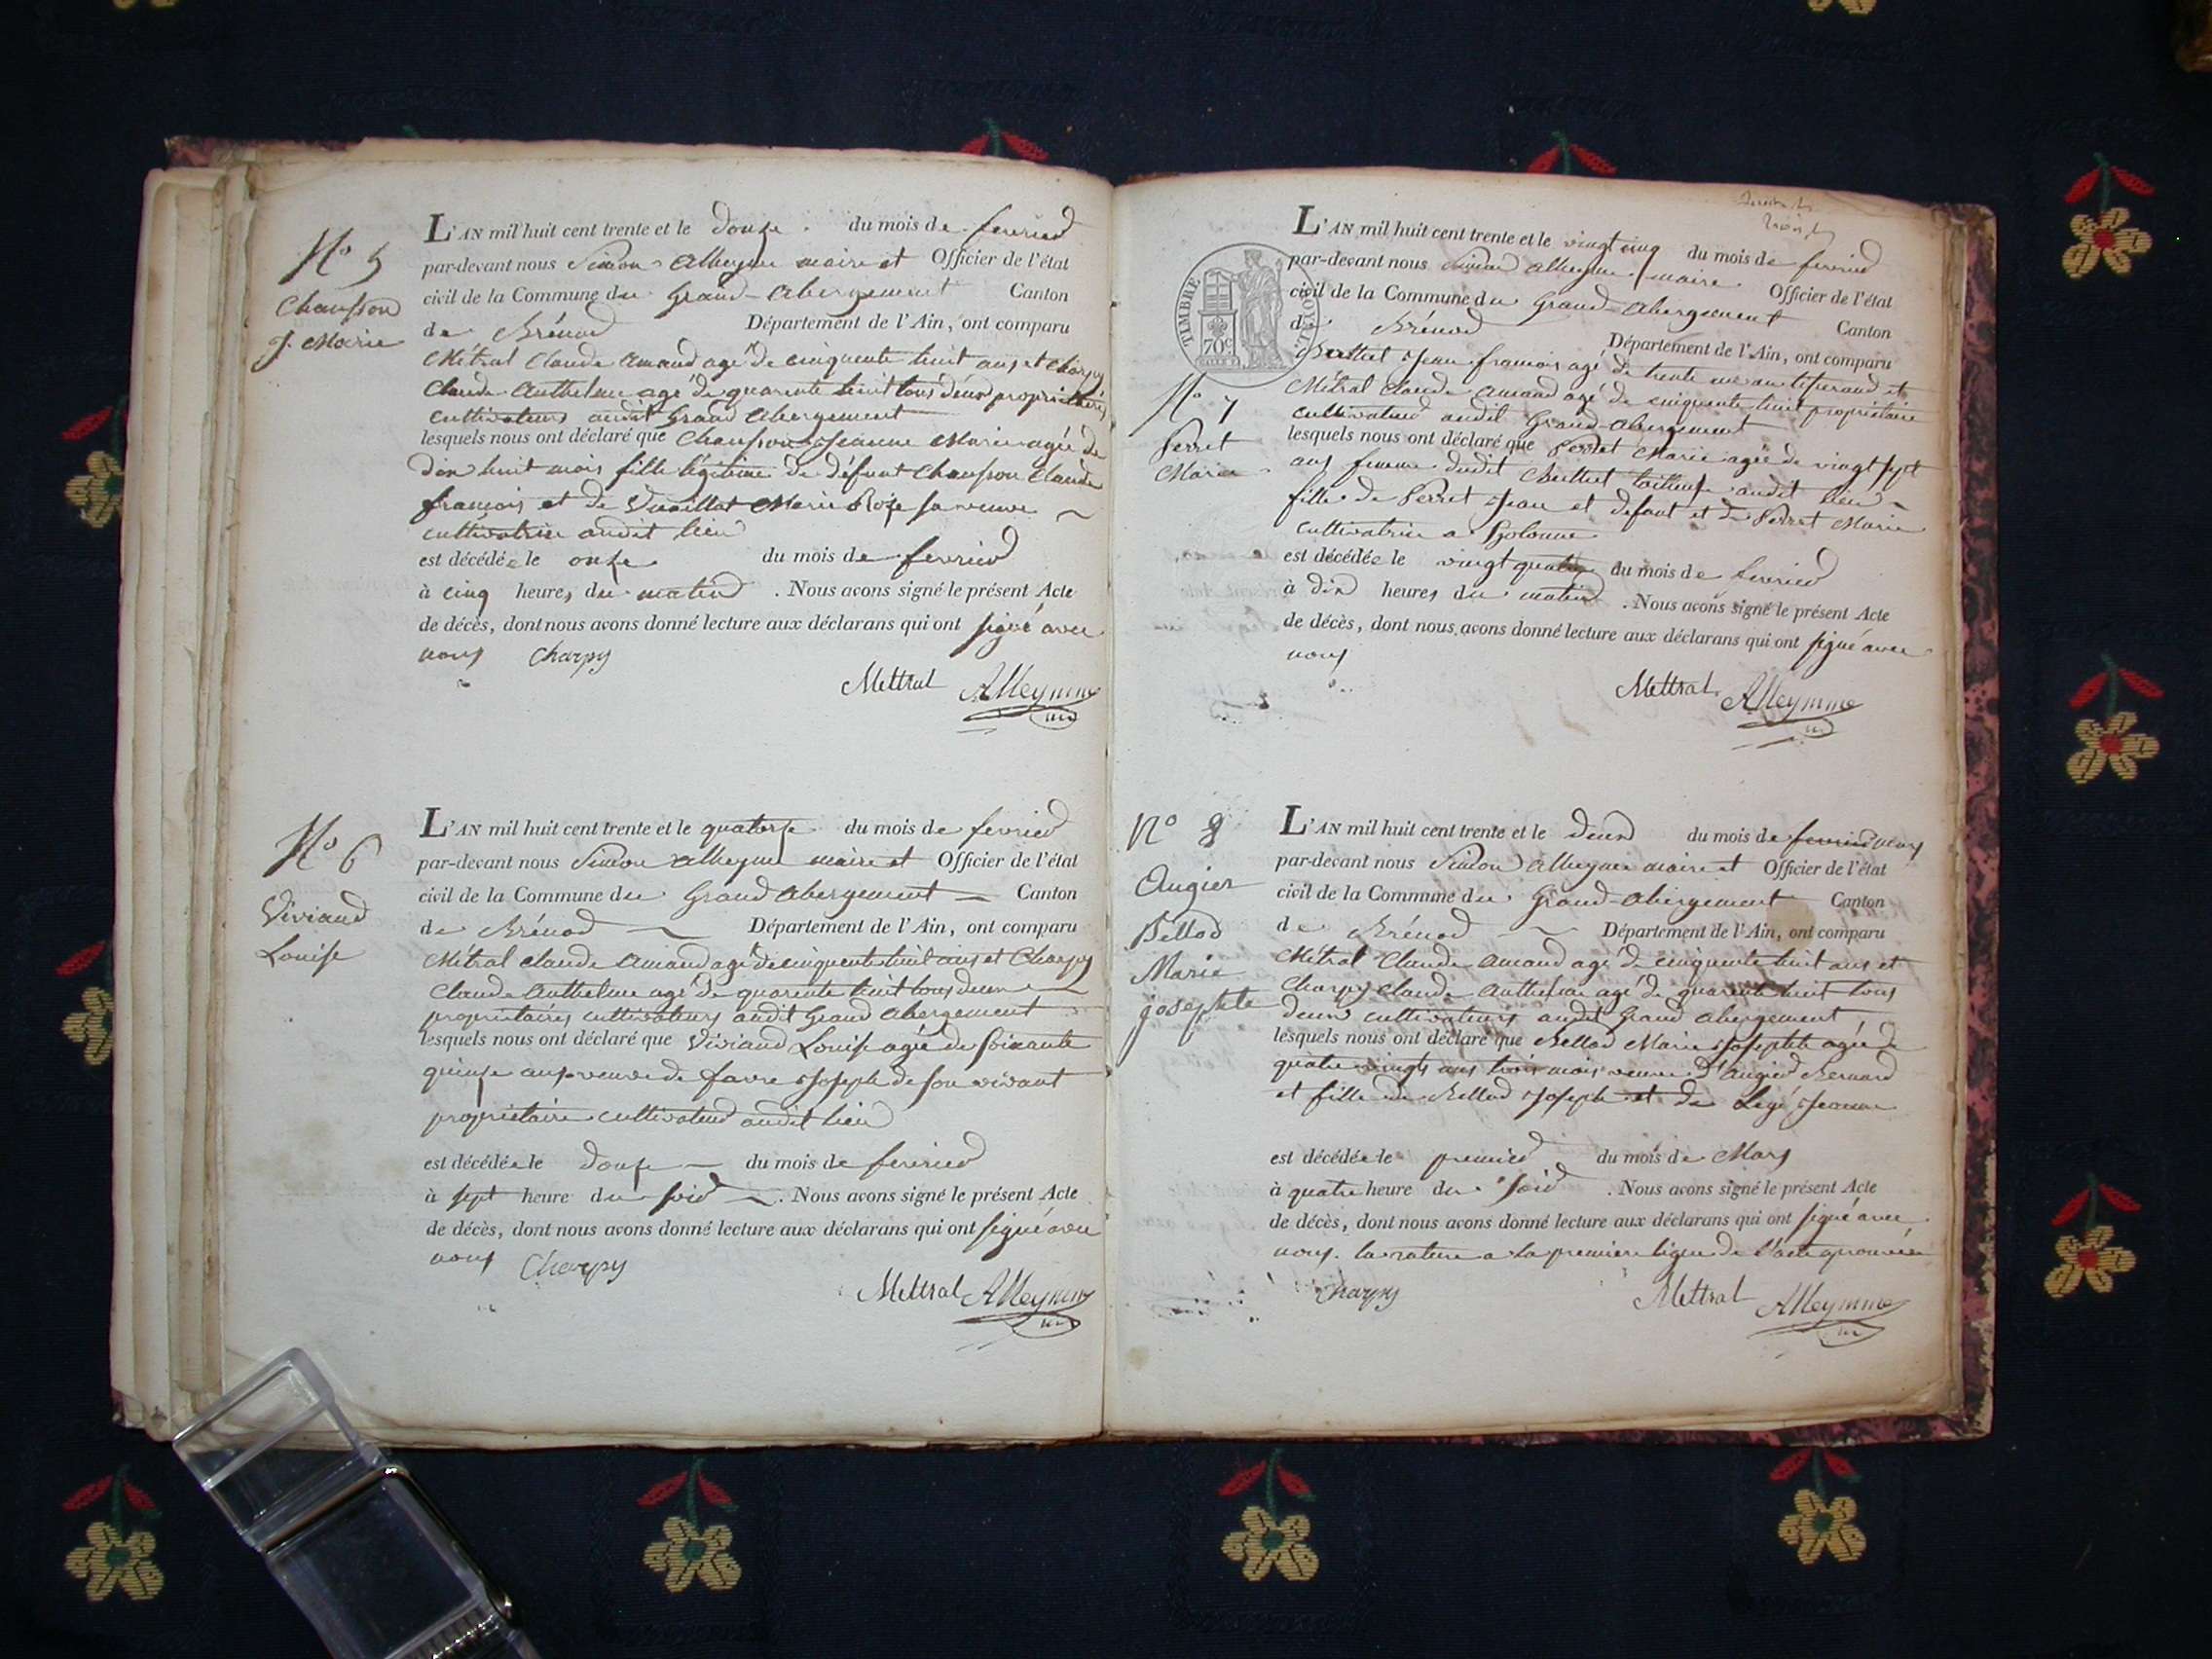 N° 5
Chausson
J. Marie
L'AN mil huit cent trente et le douze du mois de fevrier
par-devant nous Simon Alleyme maire et Officier de l'état
civil de la Commune du Grand-Abergement Canton
de Brénod Département de l'Ain, ont comparu
Métral Claude Amand agé de cinquente huit ans et Charpy
Claude Anthelme agé de quarente huit tous deux propriétaires
cultivateurs audit Grand Abergement
lesquels nous ont déclaré que Chausson Jeanne Marie agée de
dix huit mois fille légitime de défunt Chausson Claude
françois et de Vuaillat Marie Roze sa veuve
cultivatrice audit lieu
est décédée le onze du mois de fevrier
à cinq heures du matin . Nous avons signé le présent Acte
de décès, dont nous avons donné lecture aux déclarans qui ont signé avec
nous Charpy
Mettral Alleymme
N° 6
Viviand
Louise
L'AN mil huit cent trente et le quatorze du mois de fevrier
par-devant nous Simon Alleyme maire et Officier de l'état
civil de la Commune du Grand Abergement Canton
de Brénod Département de l'Ain, ont comparu
Métral Claude Amand agé de cinquente huit ans et Charpy
Claude Anthelme agé de quarente huit tous deux
propriétaires cultivateurs audit Grand Abergement
lesquels nous ont déclaré que Viviand Louise agée de soixante
quinze ans veuve de favre Joseph de son vivant
propriétaire cultivateur audit lieu
est décédée le douze du mois de fevrier
à sept heure du soir . Nous avons signé le présent Acte
de décès, dont nous avons donné lecture aux déclarans qui ont signé avec
nous Charpy
Mettral Alleymme
TIMBRE ROYAL
70c
N° 7
Perret
Marie
L'AN mil huit cent trente et le vingt cinq du mois de fevrier
par-devant nous Simon Alleyme maire Officier de l'état
civil de la Commune du Grand-Abergement Canton
de Brénod Département de l'Ain, ont comparu
Jean françois agé de trente un ans tisserand et
Métral Claude Amand agé de cinquente huit propriétaire
cultivateur audit Grand-Abergement
lesquels nous ont déclaré que Perret Marie agée de vingt sept
ans femme dudit tailleuse audit lieu
fille de Perret Jean et defunt et de Perret Marie
cultivatrice a
est décédée le vingt quatre du mois de fevrier
à dix heures du matin . Nous avons signé le présent Acte
de décès, dont nous avons donné lecture aux déclarans qui ont signé avec
nous
Mettral Alleymme
N° 8
Augier
Bellod
Marie
josephte
L'AN mil huit cent trente et le deux du mois de fevrier mars
par-devant nous Simon Alleyme maire et Officier de l'état
civil de la Commune du Grand-Abergement Canton
de Brénod Département de l'Ain, ont comparu
Métral Claude Amand agé de cinquente huit ans et
Charpy Claude Anthelme agé de quarente huit tous
deux cultivateurs audit Grand Abergement
lesquels nous ont déclaré que Bellod Marie Josephte agée de
quatre vingts ans trois mois veuve d'Augier Bernard
et fille de Bellod Joseph et de Legé Jeanne
est décédée le premier du mois de Mars
à quatre heure du soir . Nous avons signé le présent Acte
de décès, dont nous avons donné lecture aux déclarans qui ont signé avec
nous. la rature a la premiere ligne de l'acte aprouvée
Charpy
Mettral Alleymme